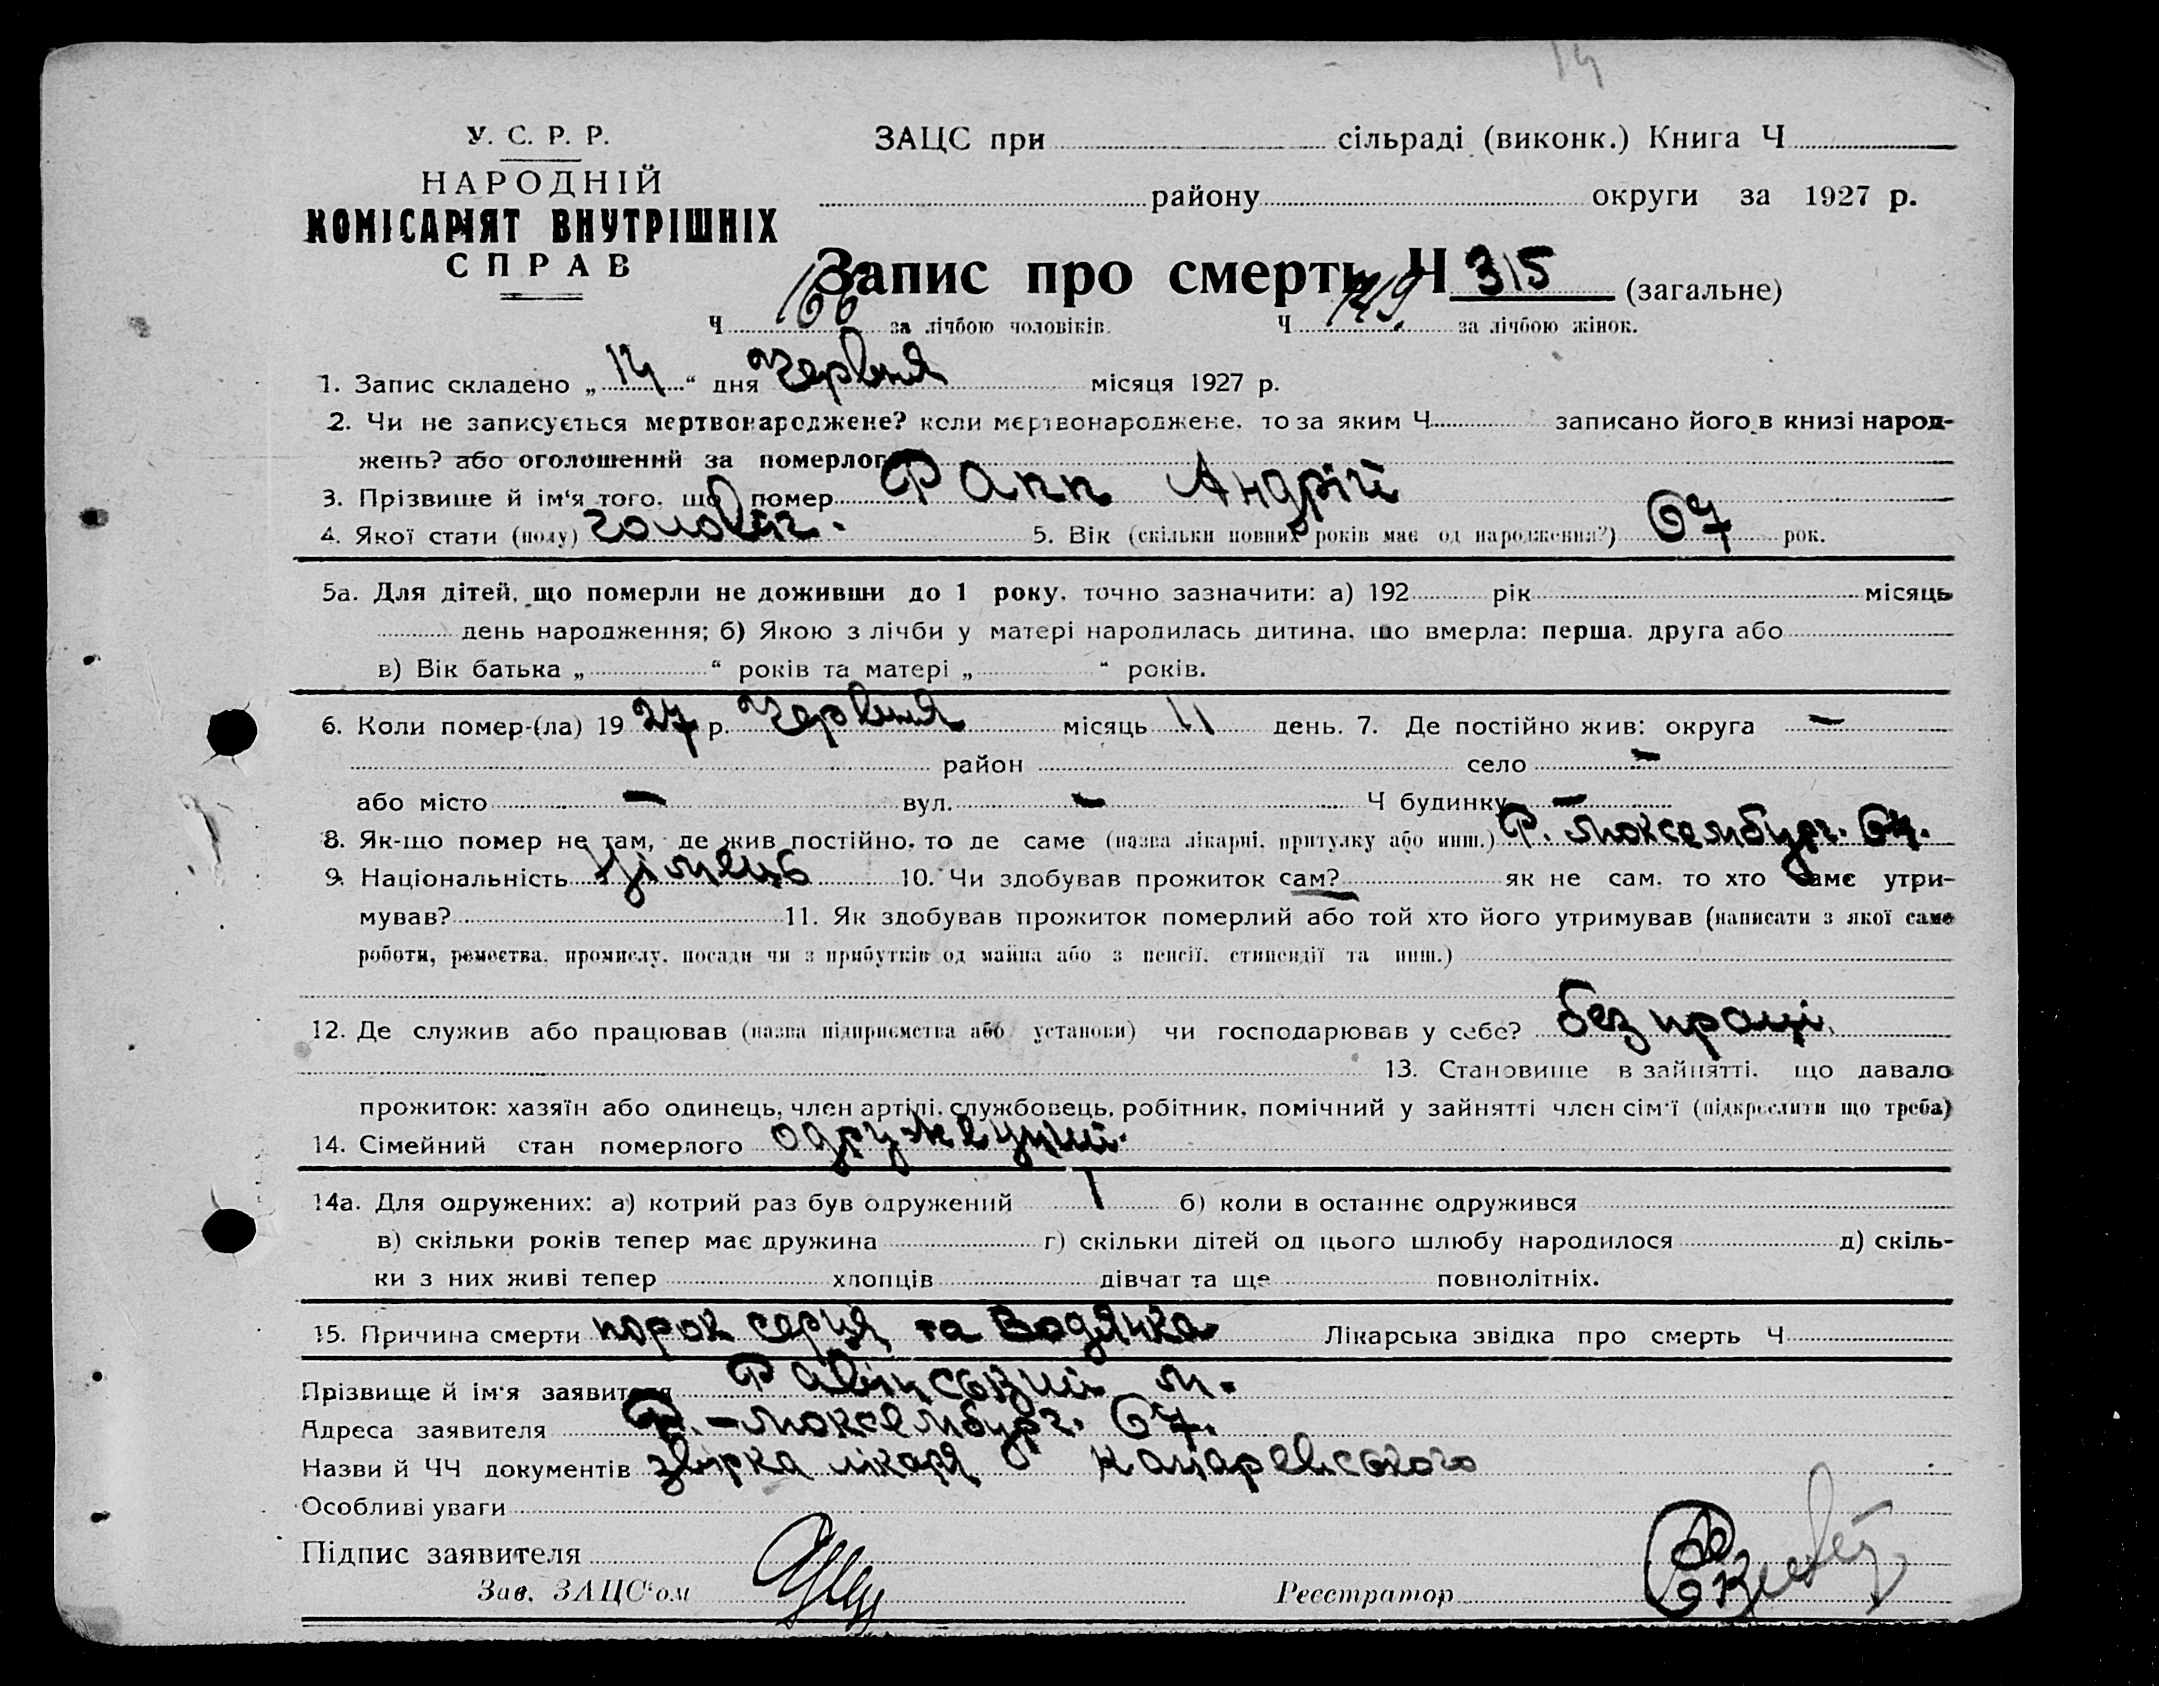 14
У. С. Р. Р.
НАРОДНІЙ
КОМІСАРІЯТ ВНУТРІШНІХ
СПРАВ
ЗАЦС при сільраді (виконк.) Книга Ч
району округи за 1927 р.
Запис про смерть Ч 315 (загальне)
Ч 166 за лічбою чоловіків. Ч 149. за лічбою жінок.
1. Запис складено „14“ дня Червня місяця 1927 р.
2. Чи не записується мертвонароджене? коли мертвонароджене, то за яким Ч записано його в книзі народ-
жень? або оголошений за померлого
3. Прізвище й ім‘я того, що помер Рапп Андрій
4. Якої стати (полу) чоловіч. 5. Вік (скільки повних років має од народження?) 67 рок.
5а. Для дітей, що померли не доживши до 1 року, точно зазначити: а) 192 рік місяць
день народження; б) Якою з лічби у матері народилась дитина, що вмерла: перша, друга або
в) Вік батька „ “ років та матері „ “ років.
6. Коли помер-(ла) 1927 р. Червня місяць 11 день. 7. Де постійно жив: округа —
район село —
або місто — вул. — Ч будинку —
8. Як-що помер не там, де жив постійно, то де саме (назва лікарні, притулку або инш.) Р. Люксембург. 67.
9. Національність Німець 10. Чи здобував прожиток сам? як не сам, то хто саме утри-
мував? 11. Як здобував прожиток померлий або той хто його утримував (написати з якої саме
роботи, ремества, промислу, посади чи з прибутків од майна або з пенсії, стипендії та инш.)
12. Де служив або працював (назва підприємства або установи) чи господарював у себе? без праці.
13. Становище в зайнятті, що давало
прожиток: хазяїн або одинець, член артілі, службовець, робітник, помічний у зайнятті член сім‘ї (підкреслити що треба)
14. Сімейний стан померлого одружений.
14а. Для одружених: а) котрий раз був одружений 1 б) коли в останнє одружився
в) скільки років тепер має дружина г) скільки дітей од цього шлюбу народилося д) скіль-
ки з них живі тепер хлопців дівчат та ще повнолітніх.
15. Причина смерти порок серця та Водянка Лікарська звідка про смерть Ч
Прізвище й ім‘я заявителя Равінський М.
Адреса заявителя Р.-Люксембург. 67.
Назви й ЧЧ документів лікаря
Особливі уваги
Підпис заявителя
Зав. ЗАЦС‘ом Реєстратор